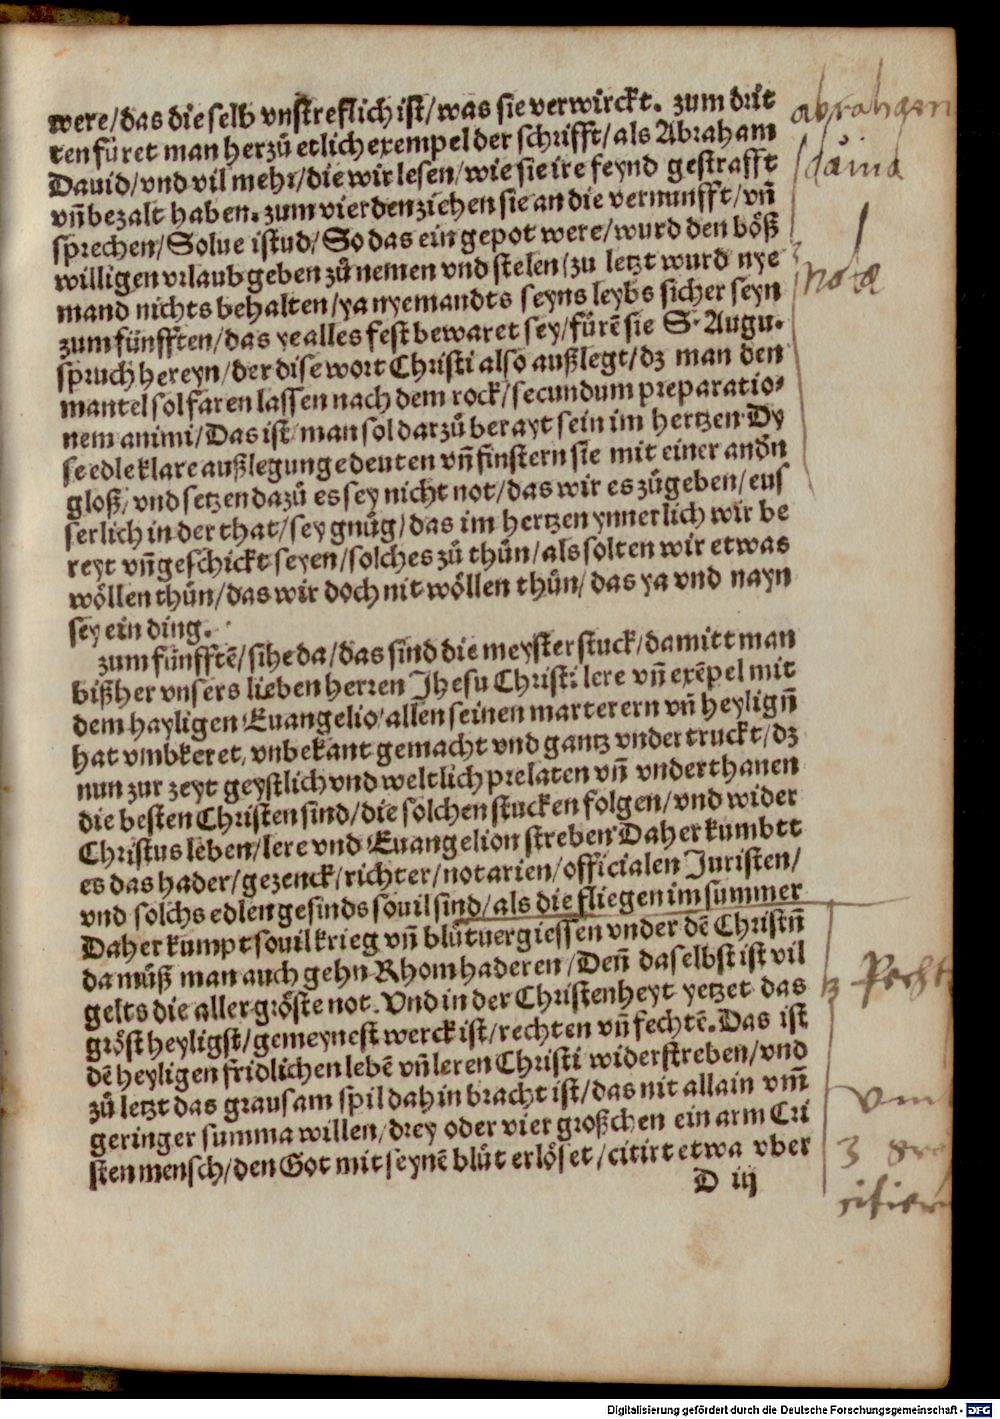 were/das die selb vnstreflich ist/was sie verwirckt. zum drit
ten füret man herzů etlich exempel der schrifft/als Abraham
Dauid/vnd vil mehr/die wir lesen/wie sie ire feynd gestrafft
vñ bezalt haben. zum vierden ziehen sie an die vernunfft/vñ
sprechen/Solue istud/So das ein gepot were/wurd den böß
willigen vrlaub geben zů nemen vnd stelen/zu letzt wurd nye
mand nichts behalten/ya nyemandts seyns leybs sicher seyn
zum fünfften/das ye alles fest bewaret sey/fürẽ sie S. Augu.
spruch hereyn/der dise wort Christi also außlegt/dz man den
mantel sol faren lassen nach dem rock/secundum preparatio⸗
nem animi/Das ist/man sol darzů berayt sein im hertzen Dy
se edle klare außlegung edeuten vñ finstern sie mit einer andñ
gloß/vnd setzen dazů es sey nicht not/das wir es zůgeben/eus
serlich in der that/sey gnůg/das im hertzen ynnerlich wir be
reyt vñ geschickt seyen/solches zů thůn/als solten wir etwas
wöllen thůn/das wir doch nit wöllen thůn/das ya vnd nayn
sey ein ding.
zum fünfftẽ/sihe da/das sind die meyster stuck/damitt man
bißher vnsers lieben herren Jhesu Christi lere vñ exẽpel mit
dem hayligen Euangelio/allen seinen marterern vñ heyligñ
hat vmbkeret, vnbekant gemacht vnd gantz vndertruckt/dz
nun zur zeyt geystlich vnd weltlich prelaten vñ vnderthanen
die besten Christen sind/die solchen stucken folgen/vnd wider
Christus leben/lere vnd Euangelion streben Daher kumbtt
es das hader/gezenck/richter/notarien/officialen Juristen/
vnd solchs edlen gesinds souil sind/als die fliegen im summer
Daher kumpt souil krieg vñ blůtuergiessen vnder dẽ Christñ
da můß man auch gehn Rhom haderen/Deñ daselbst ist vil
gelts die aller gröste not. Vnd in der Christenheyt yetzet das
gröst heyligst/gemeynest werck ist/rechten vñ fechtẽ. Das ist
dẽ heyligen fridlichen lebẽ vñ leren Christi widerstreben/vnd
zů letzt das grausam spil dahin bracht ist/das nit allain vm̃
geringer summa willen/drey oder vier großchen ein arm Cri
sten mensch/den Got mit seynẽ blůt erlöset/citirt etwa vber
D iij
abraham
dauid
nota
Vm
3 gro
citier
Digitalisierung gefördert durch die Deutsche Forschungsgemeinschaft - DFG